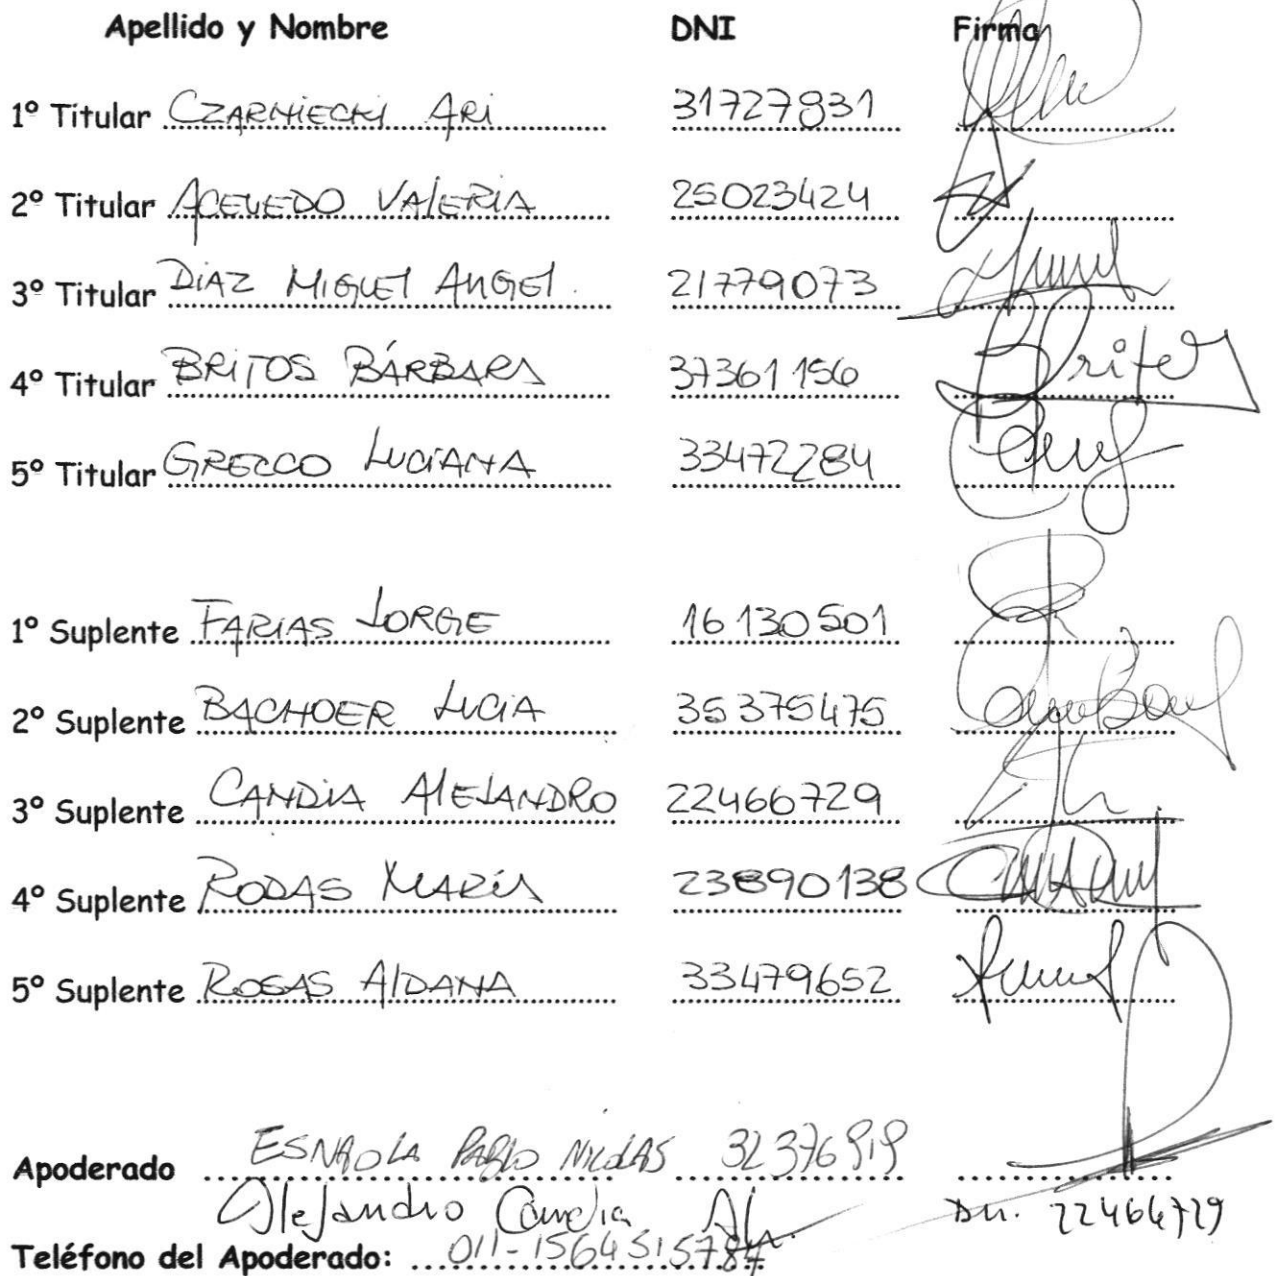 Apellido y Nombre DNI Firma
1º Titular CZARNIECKI ARI 31727831
2º Titular ACEVEDO VALERIA 25023424
3º Titular DIAZ MIGUEL ANGEL 21779073
4º Titular BRITOS BÁRBARA 37361156 Britos
5º Titular GRECCO LUCIANA 33472284
1º Suplente FARIAS JORGE 16130501
2º Suplente BACHOER LUCIA 35375475
3º Suplente CANDIA ALEJANDRO 22466729
4º Suplente RODAS MARÍA 23890138
5º Suplente ROSAS AIDANA 33479652
Apoderado ESNAOLA PABLO NICOLAS 32376919
Alejandro Candia DNI. 22466729
Teléfono del Apoderado: 011-1564515784